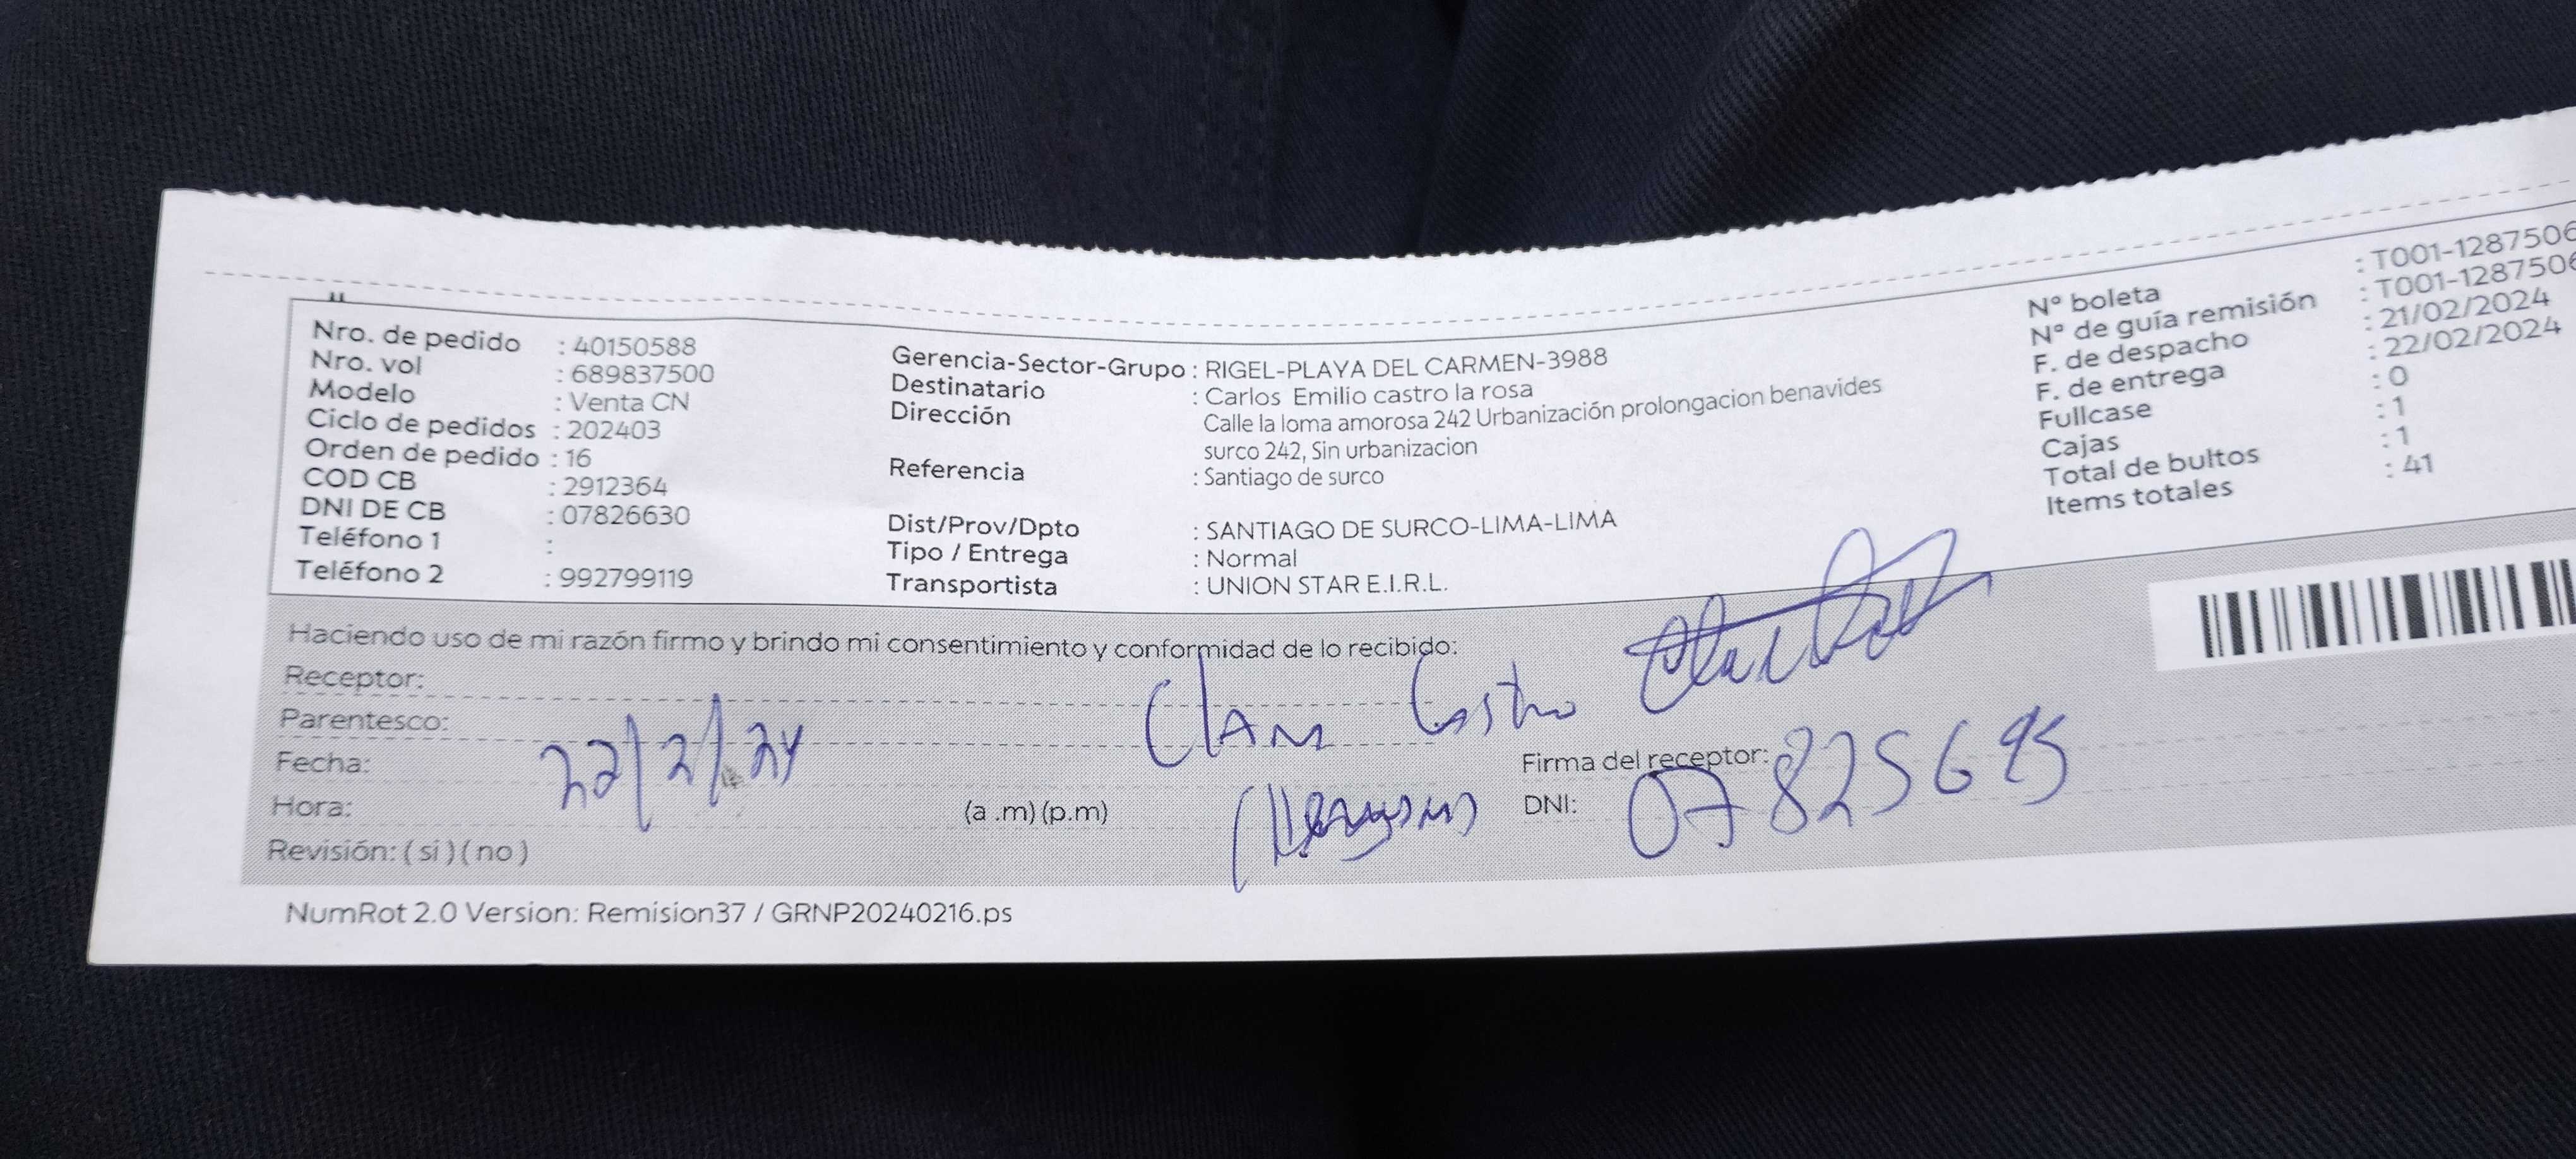 Nro. de pedido : 40150588
Nro. vol : 689837500
Modelo : Venta CN
Ciclo de pedidos : 202403
Orden de pedido : 16
COD CB : 2912364
DNI DE CB : 07826630
Teléfono 1 :
Teléfono 2 : 992799119
Gerencia-Sector-Grupo : RIGEL-PLAYA DEL CARMEN-3988
Destinatario : Carlos Emilio castro la rosa
Dirección : Calle la loma amorosa 242 Urbanización prolongacion benavides
surco 242, Sin urbanizacion
Referencia : Santiago de surco
Dist/Prov/Dpto : SANTIAGO DE SURCO-LIMA-LIMA
Tipo / Entrega : Normal
Transportista : UNION STAR E.I.R.L.
N° boleta : T001-1287506
N° de guía remisión : T001-1287506
F. de despacho : 21/02/2024
F. de entrega : 22/02/2024
Fullcase : 0
Cajas : 1
Total de bultos : 1
Items totales : 41
Haciendo uso de mi razón firmo y brindo mi consentimiento y conformidad de lo recibido:
Receptor:
Castro
Parentesco:
Fecha: 22/2/24
Firma del receptor:
Hora: (a .m) (p.m)
DNI: 07825695
Revisión: ( si ) ( no )
NumRot 2.0 Version: Remision37 / GRNP20240216.ps